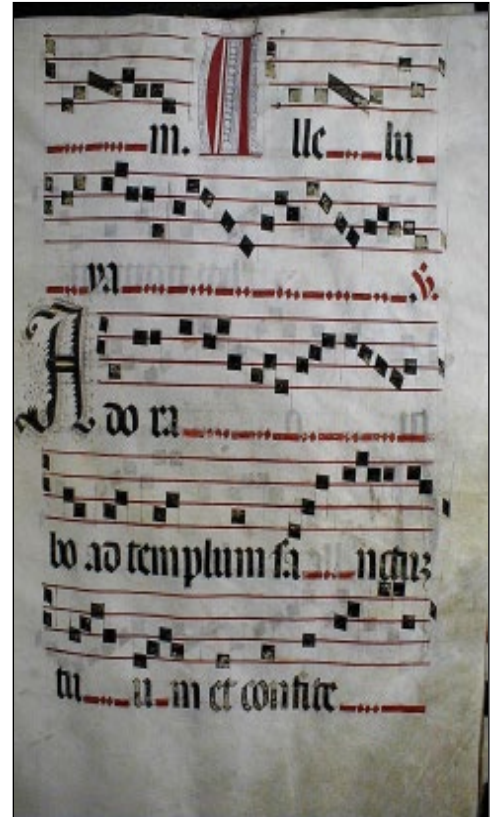 m. A lle lu
ya. ℣.
A do ra
bo ad templum sa nctuz
tu u m et confite